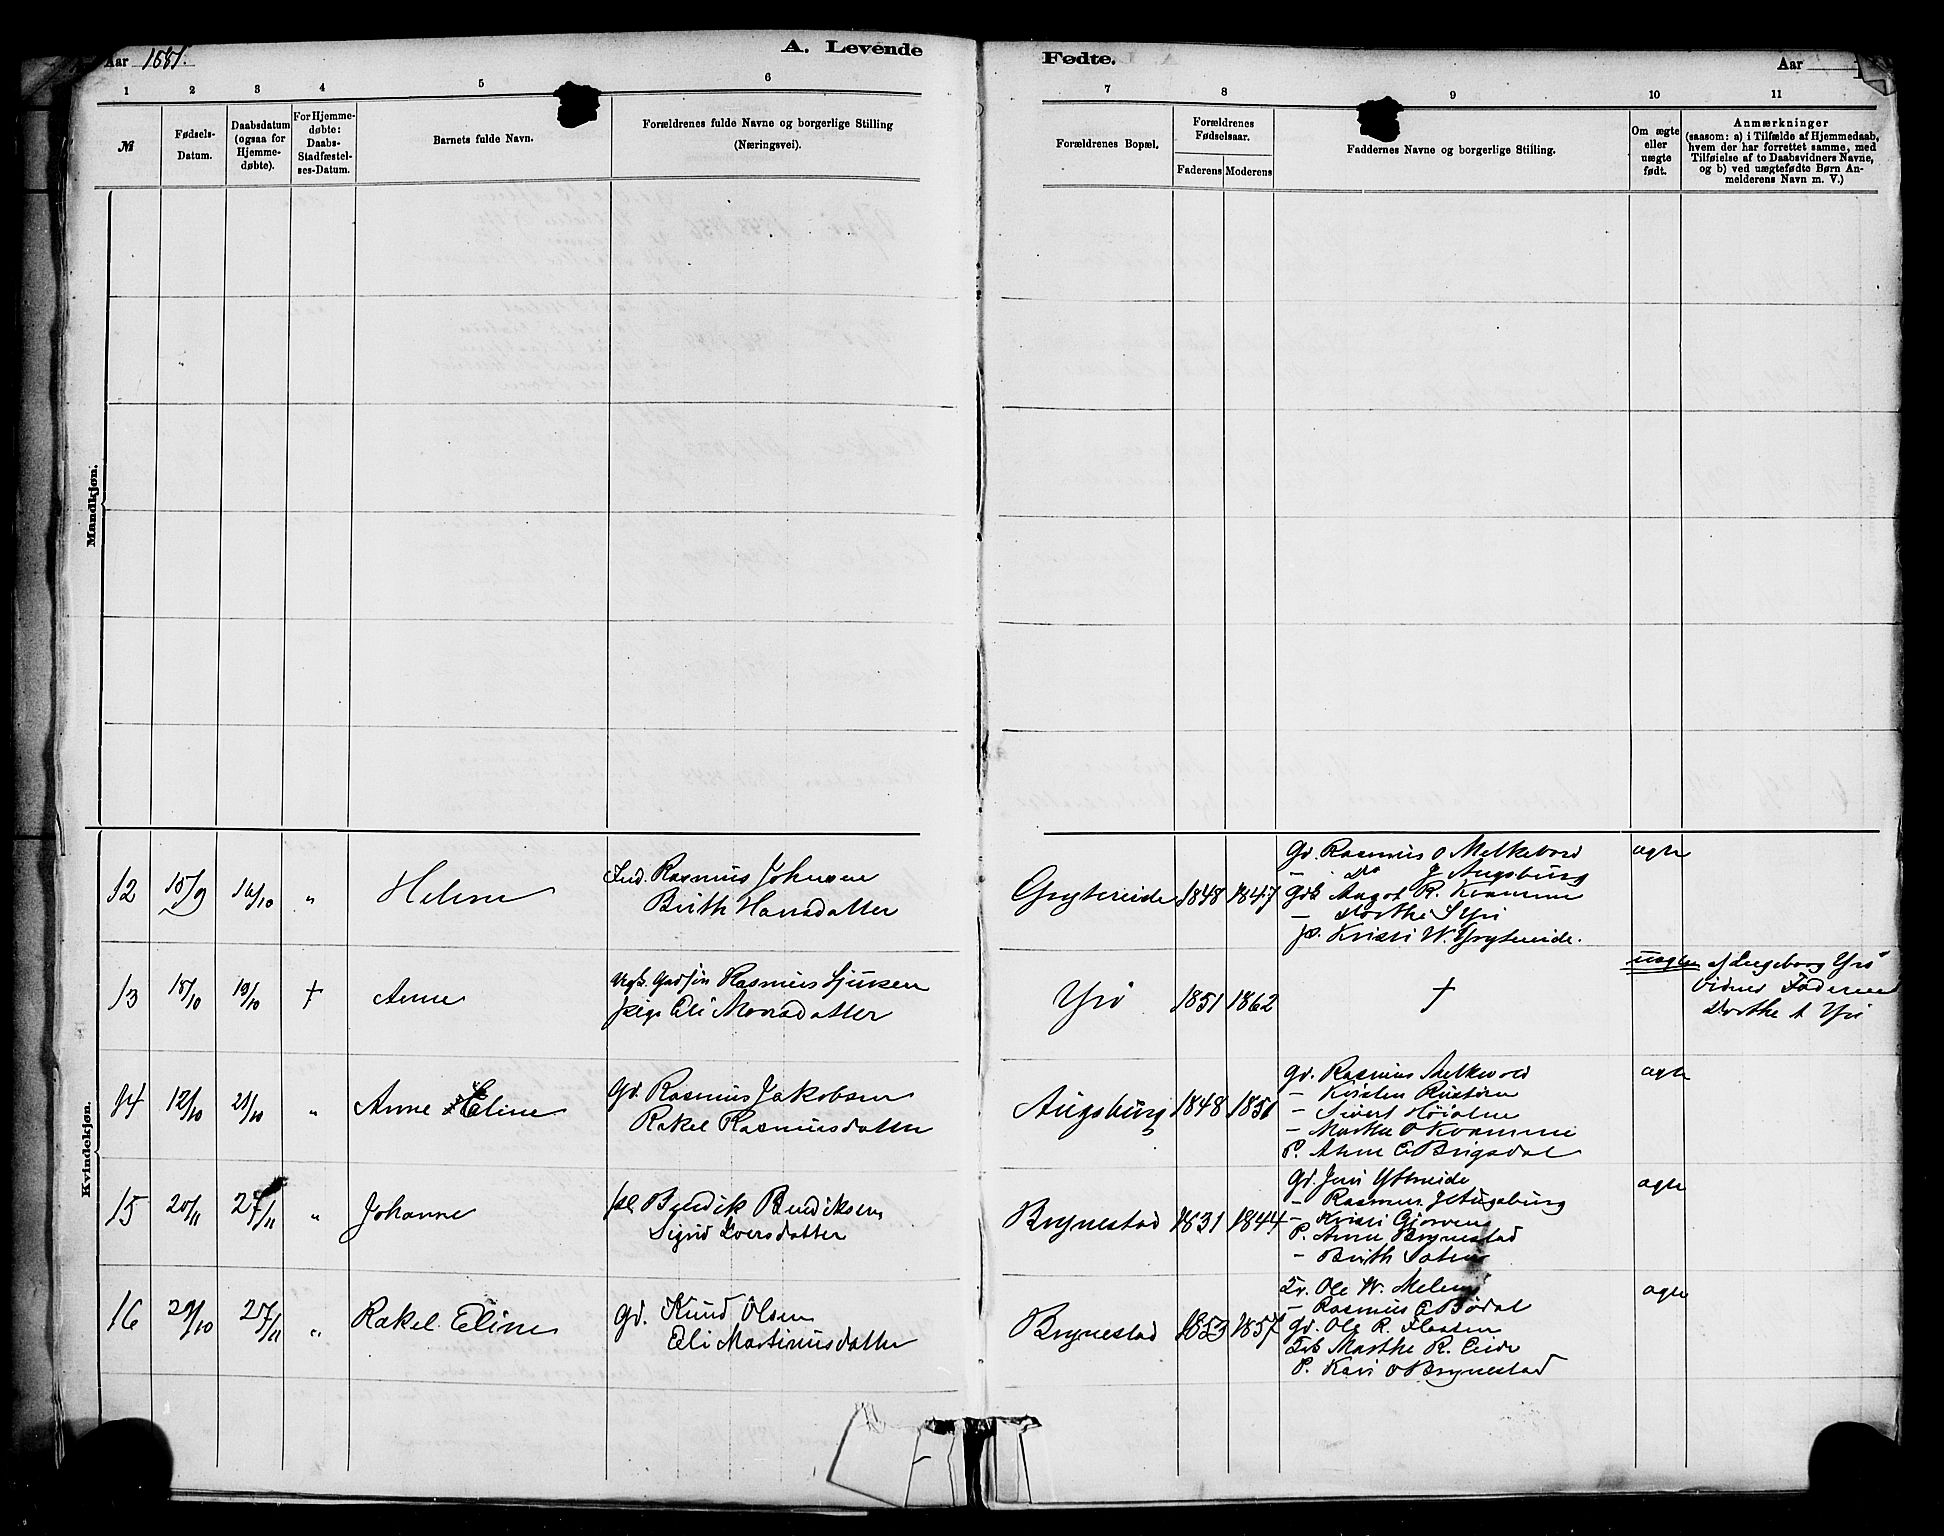 Aar 1881.
A. Levende
Fødte.
Aar
1
2
3
4
5
6
7
8
9
10
11
№
Fødsels-
Datum.
Daabsdatum
(ogsaa for
Hjemme-
døbte).
For Hjemme-
døbte:
Daabs-
Stadfæstel-
ses-Datum.
Barnets fulde Navn.
Forældrenes fulde Navne og borgerlige Stilling
(Næringsvei).
Forældrenes Bopæl.
Forældrenes
Fødselsaar.
Faderens
Moderens
Faddernes Navne og borgerlige Stilling.
Om ægte
eller
uægte
født.
Anmærkninger
(saasom: a) i Tilfælde af Hjemmedaab,
hvem der har forrettet samme, med
Tilføielse af to Daabsvidners Navne,
og b) ved uægtefødte Børn An-
melderens Navn m. V.)
Mandkjøn.
Kvindekjøn.
12 15/9 16/10 " Helene
Ind. Rasmus Johnsen
Brith Hansdatter
Grytereide 1848 1847
Gd. Rasmus O Melkevold
— Do J Augsburg
Gdk Angot R. Kvamme
— Dorthe S Yri
p. Kristi W. Grytereide.
ægte
13 15/10 19/10 † Anne
Ungk. Rasmus Sjursen
pige Eli Monsdatter
Yri 1851 1862
†
uægte
af Ingeborg Yri
Vidner Faderen
Dorthe A Yri
14 12/10 21/10 " Anne Eline
Gd. Rasmus Jakobsen
Rakel Rasmusdatter
Augsburg 1848 1851
Gd. Rasmus Melkevold
— Kristen Rustøen
— Sivert Høialme
— Marthe O Kvamme
P. Anne E Brigsdal
ægte
15 20/11 27/11 " Johanne
pl. Bendik Bendiksen
Sigrid Iversdatter
Brynestad 1831 1844
Gd. Jens Ytreeide
— Rasmus J Augsburg
— Kristi Gjørven
P. Anne Brynestad
— Brith Sæten
ægte
16 29/10 27/11 " Rakel Eline
Gd. Knud Olsen
Eli Martinusdatter
Brynestad 1853 1857
Ole W. Melheim
— Rasmus E Bødal
Gd. Ole R. Flaaten
Marthe R. Eide
P. Kari O Brynestad
ægte